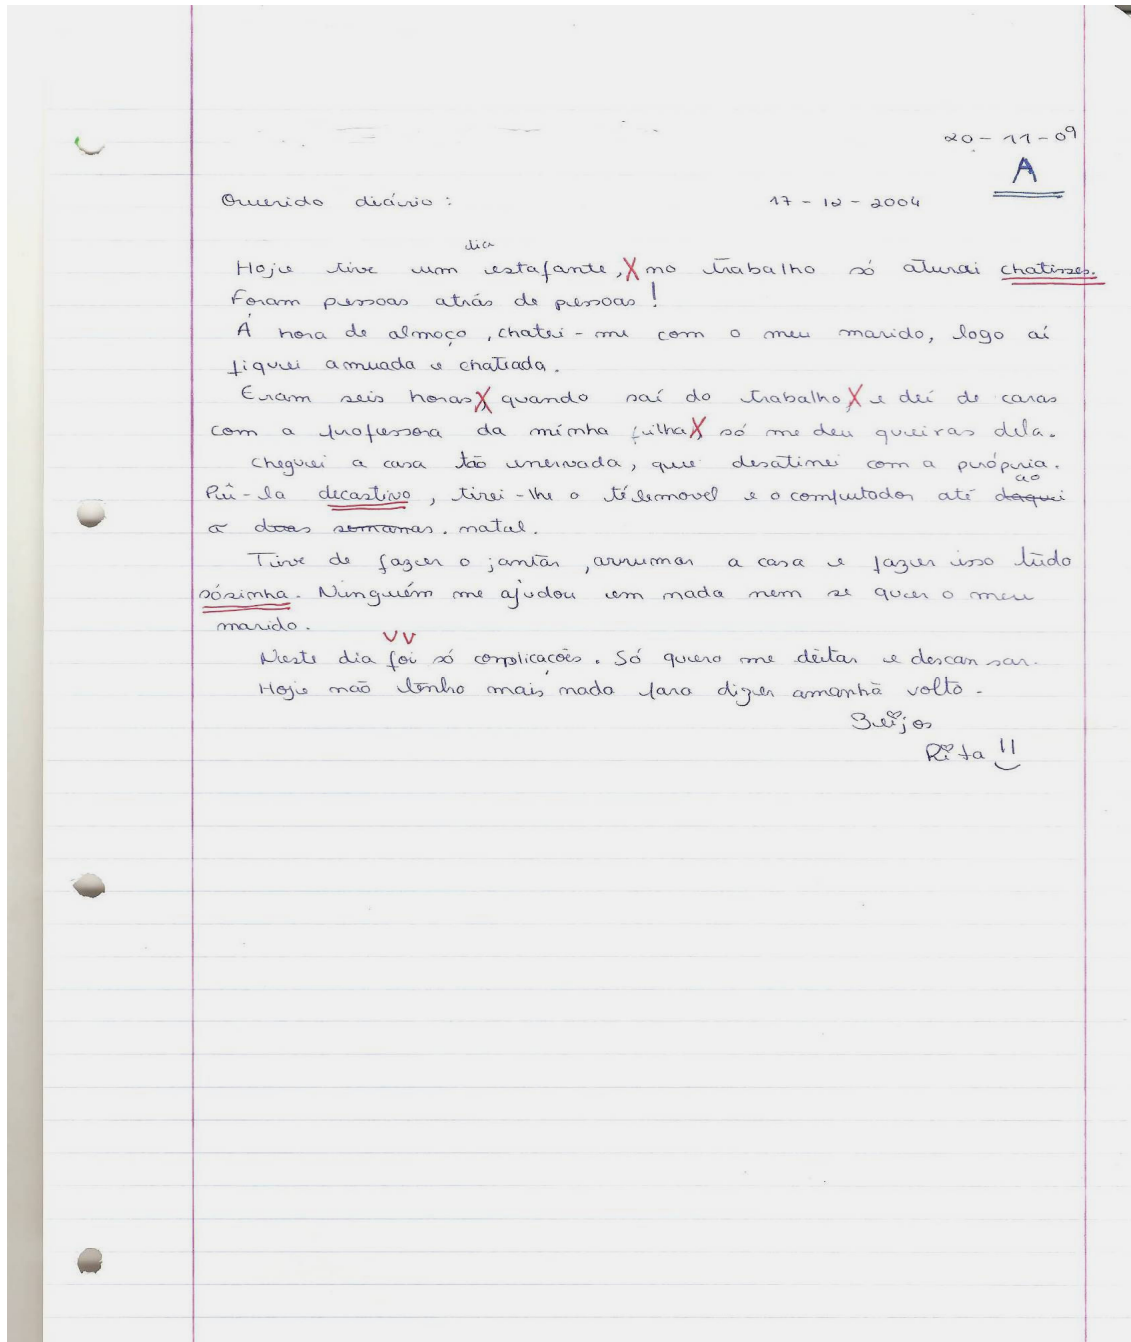 20-11-09
A
Querido diário: 17-12-2004
dia
Hoje tive um estafante, X no trabalho só aturai chatisses.
Foram pessoas atrás de pessoas!
Á hora de almoço, chatei-me com o meu marido, logo aí
fiquei amuada e chatiada.
Eram seis horas, X quando saí do trabalho, X e deí de caras
com a professora da minha filha X só me deu queiras dela.
Cheguei a casa tão enervada, que desatinei com a própria.
ao
Pûi-la decastivo, tirei-lhe o télemovel e o computador até daqui
a duas semanas. natal.
Tive de fazer o jantar, arrumar a casa e fazer isso tudo
sózinha. Ninguém me ajudou em nada nem se quer o meu
marido.
V V
Neste dia foi só complicações. Só quero me deitar e descansar.
Hoje não tenho mais nada para dizer amanhã volto.
Beijos
Rita !!